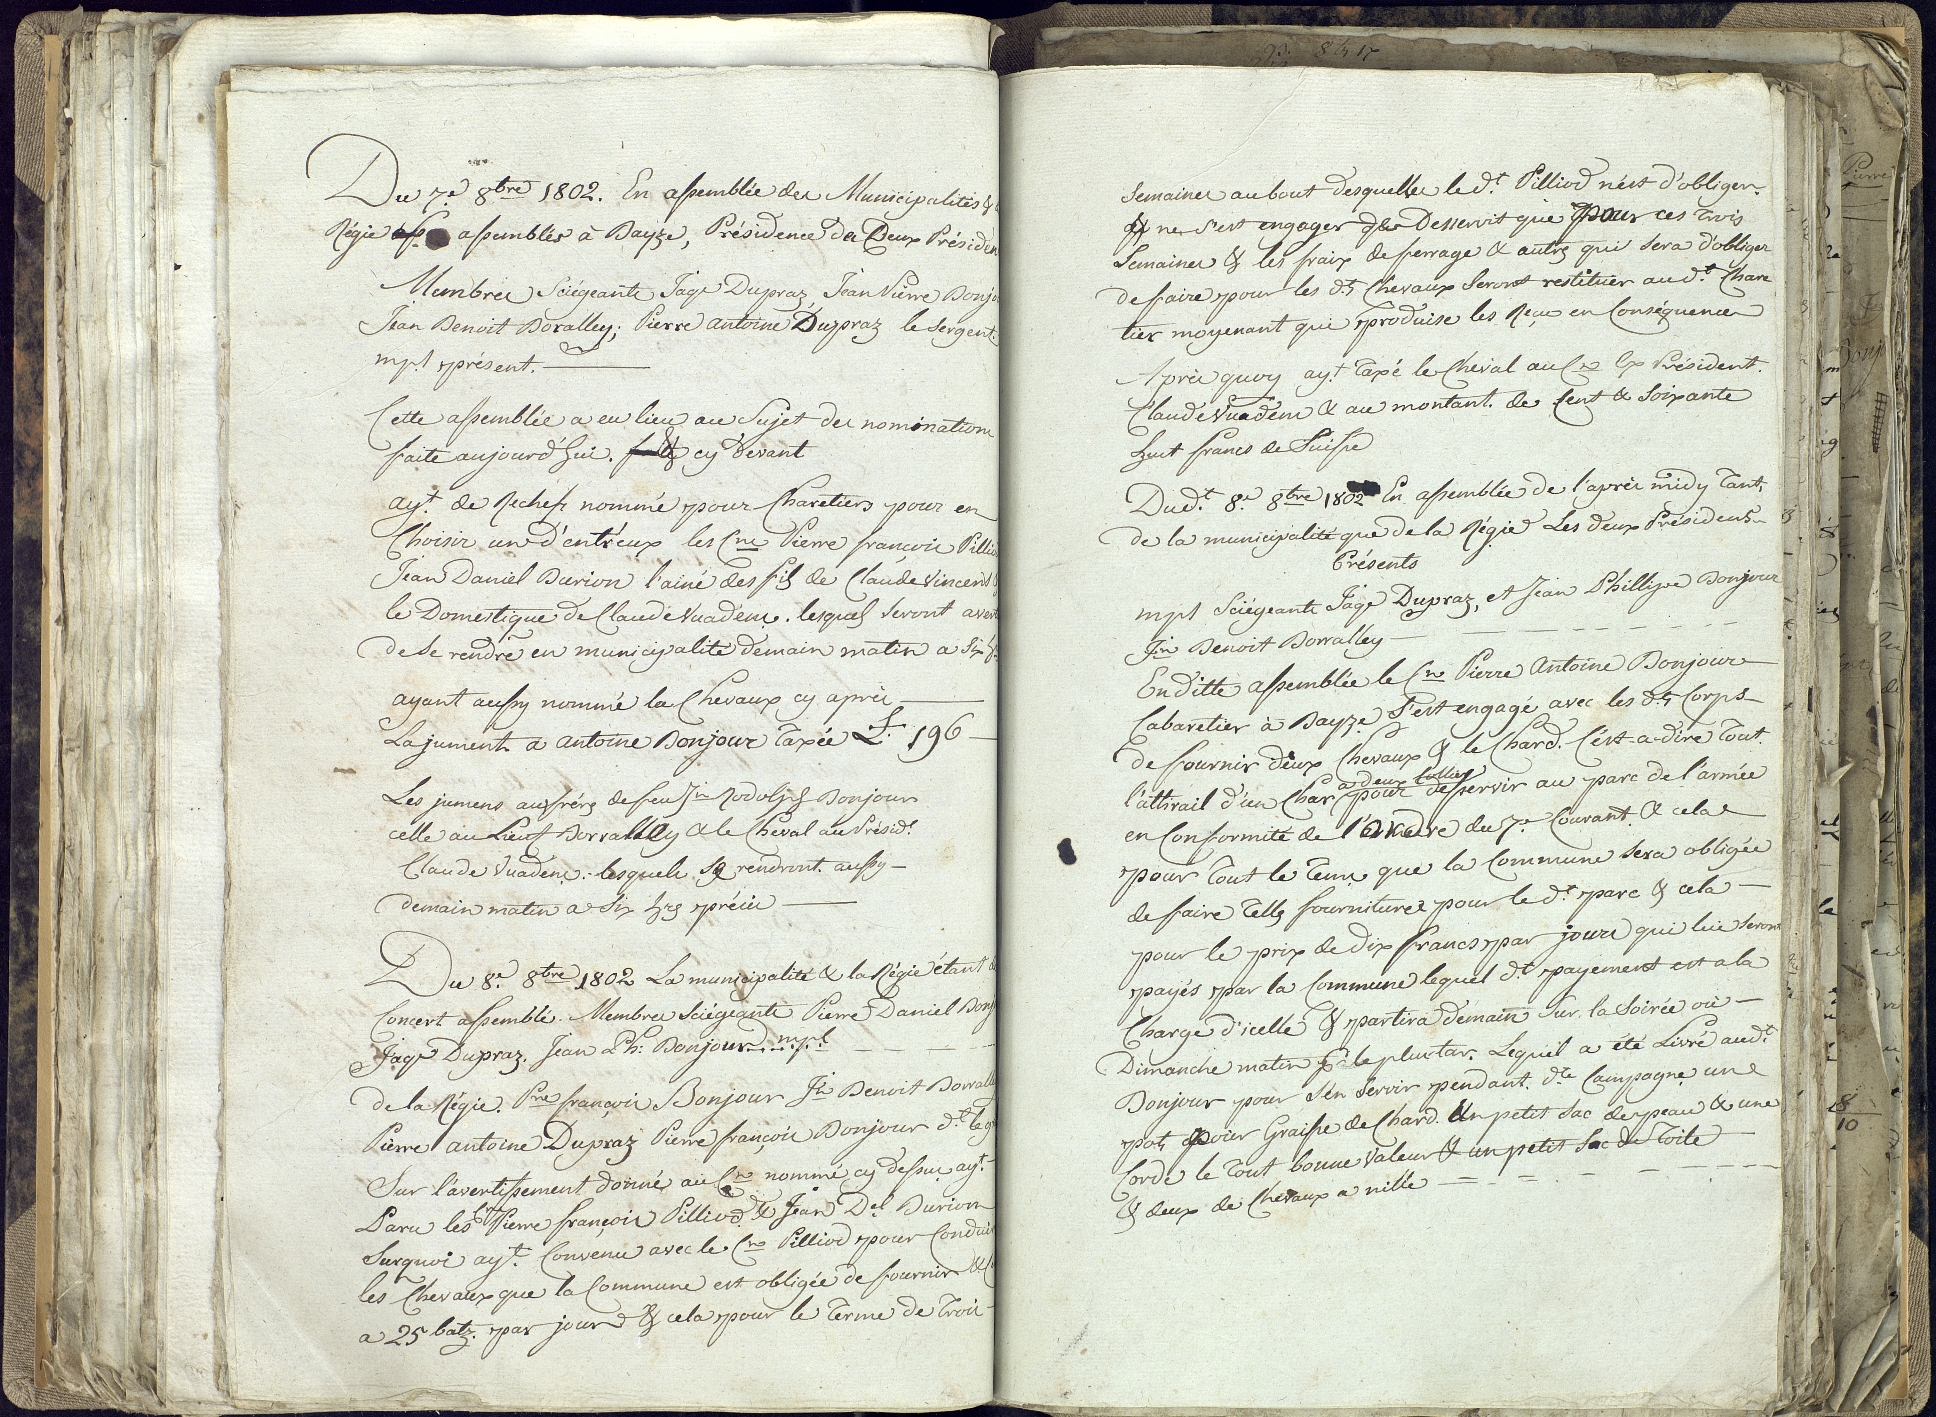 Du 7.e 8bre 1802. En assemblée des Municipalités &
Régie assemblés à Bayze, Présidence des Deux Présiden
Membres Sciégeants Jaqs Dupraz, Jean Pierre Bonjo
Jean Benoit Boralley; Pierre antoine Dupraz le Sergent
mpl présent.
Cette assemblée a eu lieu au Sujet des nominations
faite aujourd'hui. cy devant
ayt. de Rechefs nommé pour Charetiers pour en
Choisir un d'entreux les Cns Pierre françois Pillio
Jean Daniel Burion l'ainé des fils de Claude Vincent &
le Domestique de Claude Vuadens. lesquels seront avert
de se rendre en municipalité demain matin a Six h
ayant aussy nommé les Chevaux cy après
La jument a antoine Bonjour Taxée L. 196
Les jumens aux frères de feu Jn Rodolph Bonjour
celle au Lieut Borralley & le Cheval au Présidt
Claude Vuadens. lesquels se rendront aussy
demain matin a Six hrs précis
Du 8.e 8bre 1802 La municipalité & la Régie étant de
Concert assemblé. Membres Sciégeants Pierre Daniel Bonj
Jaqs Dupraz. Jean Ph: Bonjour mpl
de la Régie. Pre françois Bonjour Jn Benoit Borralley
Pierre antoine Dupraz Pierre françois Bonjour dt le g
Sur l'avertissement donné aux Cns nommé cy dessus ayt.
Paru les Cns Pierre françois Pilliod & Jean Del Burion
Surquoi ayt. Convenu avec le Cn Pilliod pour Conduir
les Chevaux que la Commune est obligée de fournir &
a 25 batz. par jour & cela pour le Terme de Trois
Semaines au bout desquelles le dt. Pilliod n'est d'obliger
& ne s'est engager des Desservit que pour ces Trois
Semaines & les fraix de ferrage & autrs qui sera d'obliger
de faire pour les dts Chevaux Seront restituer au dt. Chare
tier moyenant qui produise les Reçus en Conséquence
Après quoy ayt. Taxé le Cheval au Cn Ex Président.
Claude Vuadens & au montant de Cent & Soixante
huit francs de Suisse
Dudt. 8.e 8bre 1802 En assemblée de l'après midy Tant
de la municipalité que de la Régie Les deux Présidents
Présents
mpl Sciégeants Jaqs Dupraz, et Jean Phillipe Bonjour
Jn Benoit Borralley
En ditte assemblée le Cn Pierre Antoine Bonjour
Cabaretier à Bayze s'est engagé avec les dts Corps
de fournir deux Chevaux & le Chard. C'est-a-dire Tout
l'attirail d'un Char a deux Colliers pour desservir au parc de l'armée
en Conformité de l'Ordre du 7.e Courant. & cela
pour Tout le Tems que la Commune sera obligée
de faire Tells fournitures pour le dt. parc & cela
pour le prix de dix francs par jours qui lui seront
payés par la Commune lequel dt. payement est a la
Charge d'icelle & partira demain Sur la Soirée où
Dimanche matin le plus tar. Lequel a été Livré audt.
Bonjour pour s'en servir pendant dte Campagne une
pot pour Graisse de Chard. Un petit Sac de peau & une
Corde le Tout bonne Valeur & un petit Sac de Toile
& deux de Chevaux a nille